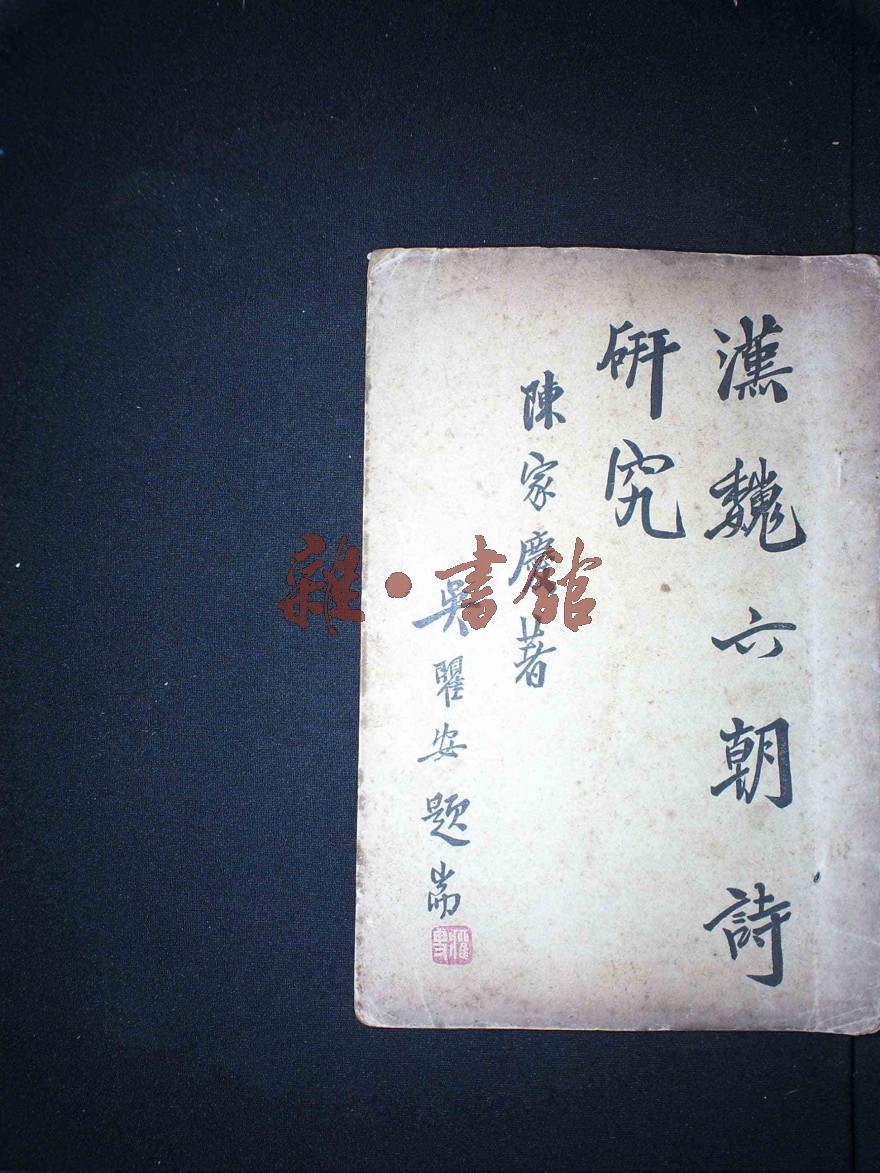 漢魏六朝詩
研究
陳家慶著
吳瞿安題耑
雜·書館